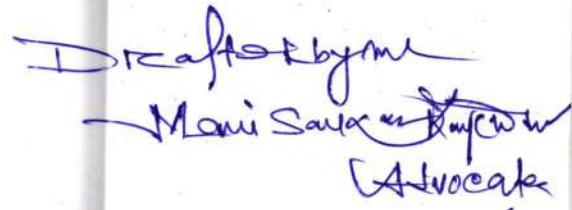 Drafted by me
Mani Sankar
Advocate